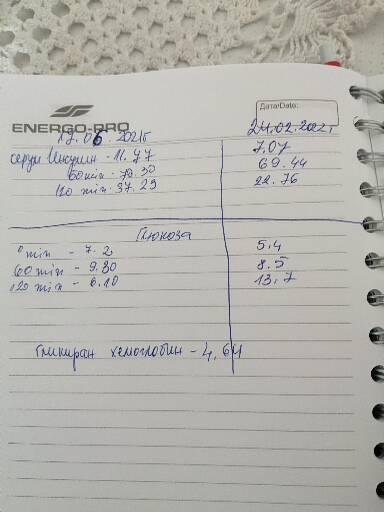 Дата/Date:
ENERGO-PRO
17.06.2021г 24.02.202г
серум Инсулин - 11.77 7.07
60 min - 79.30 69.44
120 min 37.29 22.76
Глюкоза
0 min - 7.2 5.4
60 min - 9.80 8.5
120 min - 6.10 13.7
Гликиран хемоглобин - 4,64